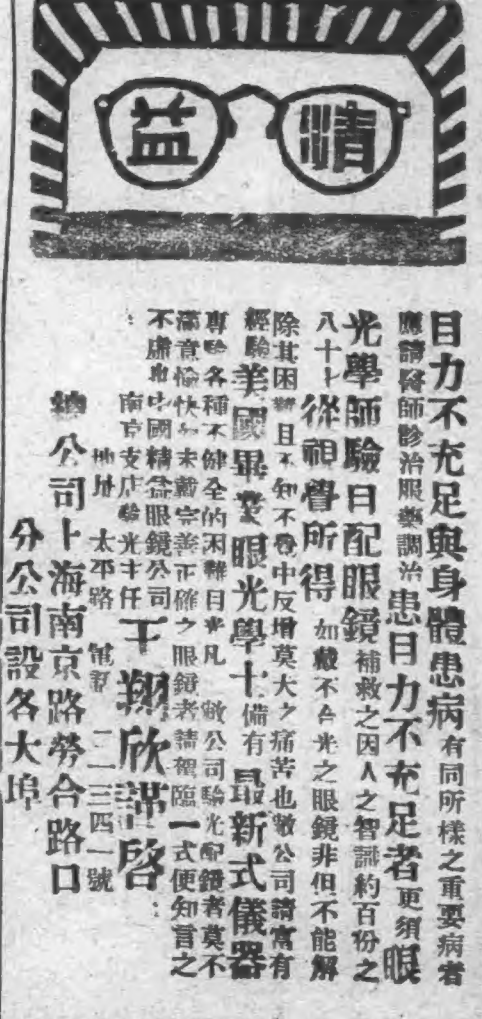 精益
目力不充足與身體患病有同所樣之重要病者
應請醫師診治服藥調治患目力不充足者更須眼
光學師驗目配眼鏡補救之因人之智識約百份之
八十七從視覺所得如戴不合光之眼鏡非但不能解
除其困難且不知不覺中反增莫大之痛苦也敝公司請富有
經驗美國畢業眼光學士備有最新式儀器
專驗各種不健全的困難目光凡敝公司驗光配鏡者莫不
滿意愉快如未戴完善正確之眼鏡者請駕臨一式便知言之
不虛也中國精益眼鏡公司
南京支店驗光主任王翔欣謹啓
地址 太平路 電話 二一三四一號
總公司上海南京路勞合路口
分公司設各大埠